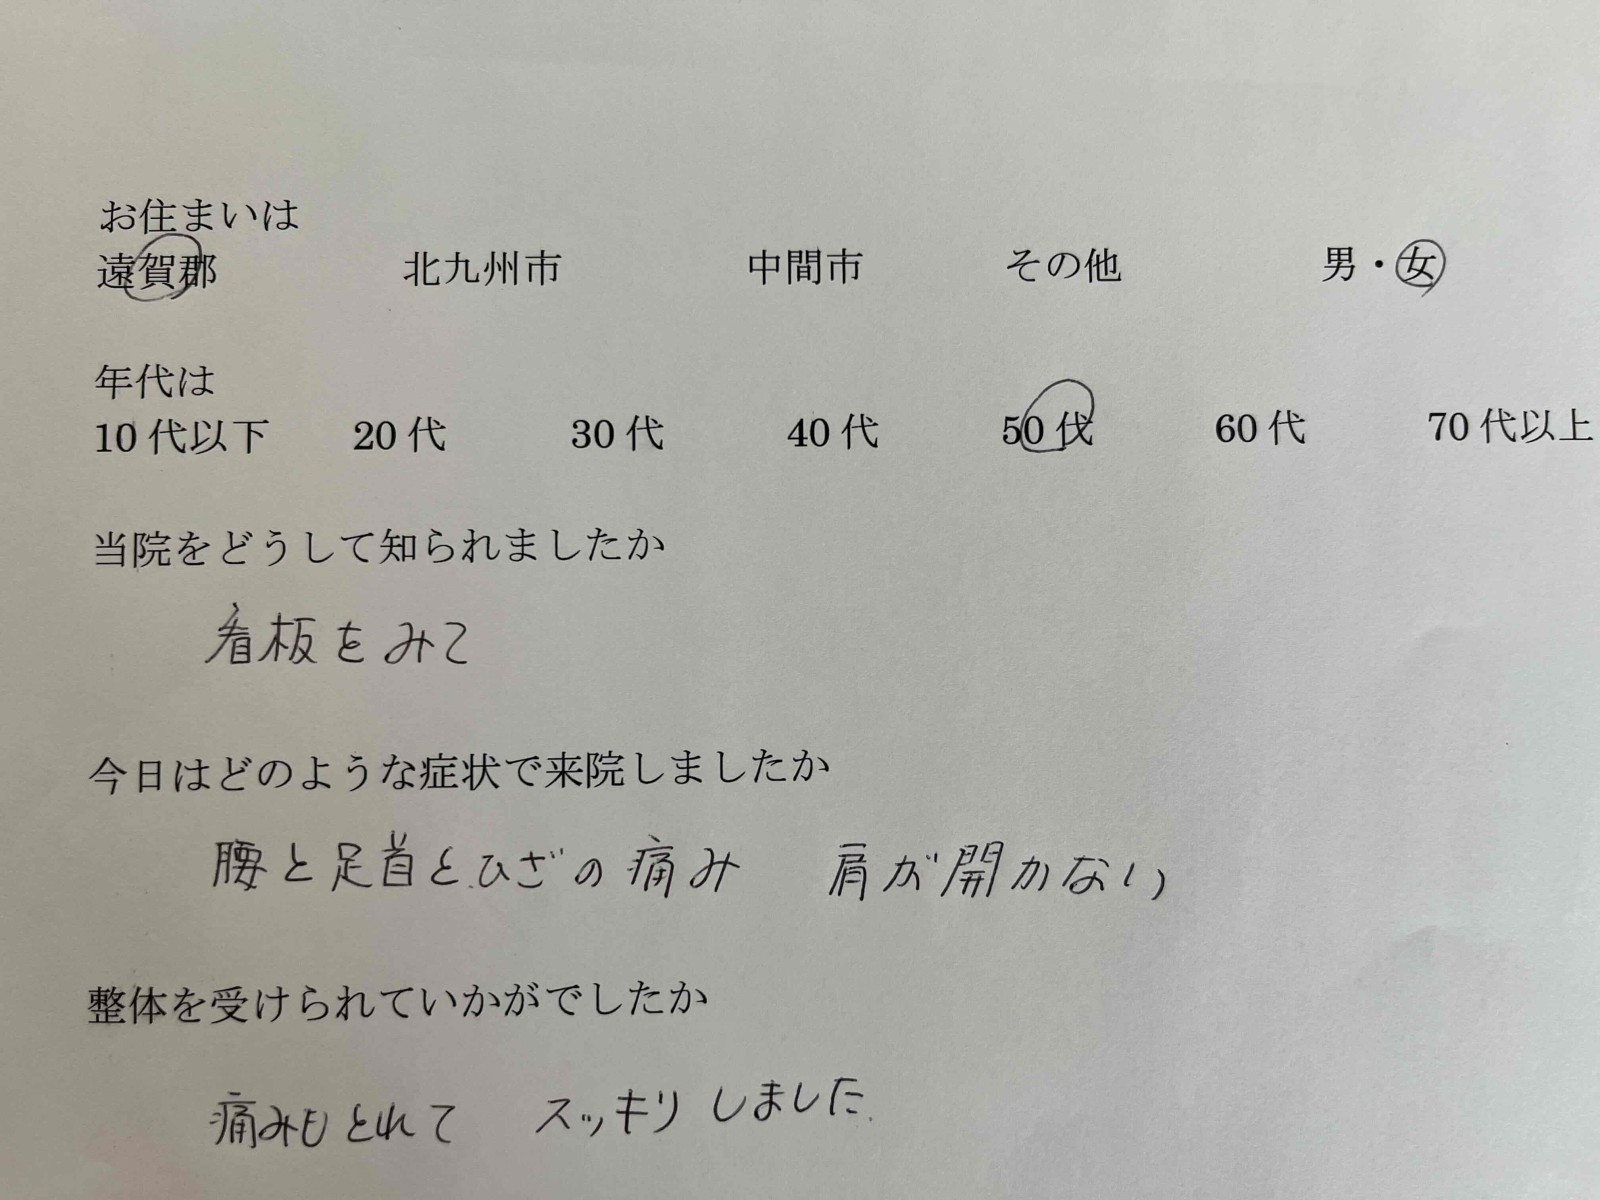 お住まいは
遠賀郡 北九州市 中間市 その他 男・女
年代は
10代以下 20代 30代 40代 50代 60代 70代以上
当院をどうして知られましたか
看板をみて
今日はどのような症状で来院しましたか
腰と足首とひざの痛み 肩が開かない
整体を受けられていかがでしたか
痛みもとれて スッキリしました.